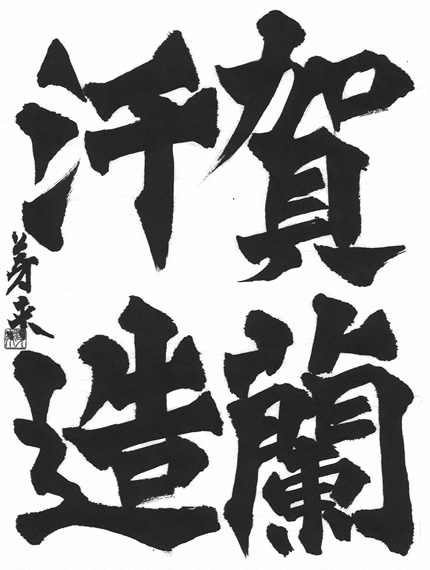 賀蘭
汗造
芽来